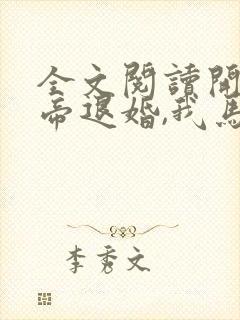 全文閱讀開
帝退婚,我馬
李秀文